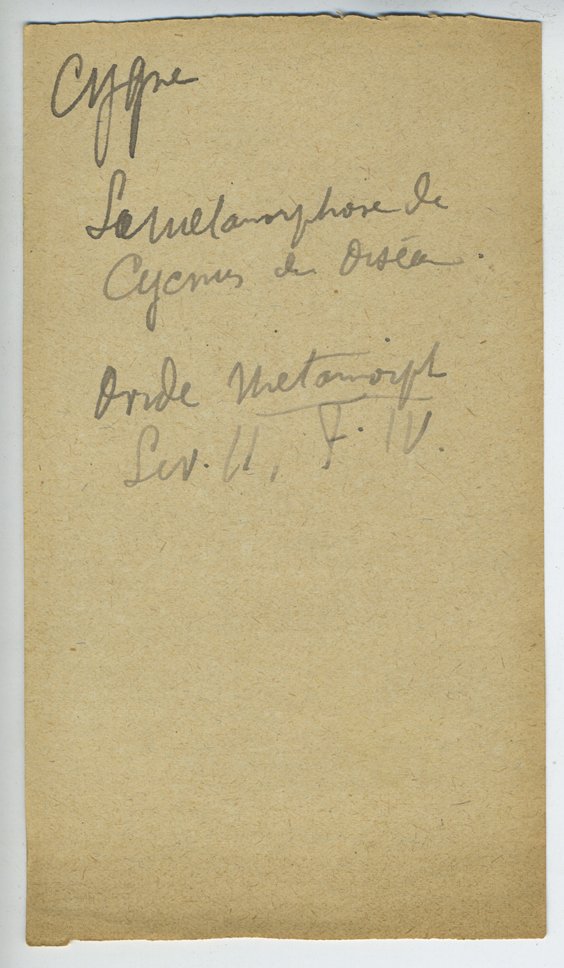 Cygne
La métamorphose de
Cycnus en Oiseau.
Ovide Metamorph
Liv. II, F. IV.